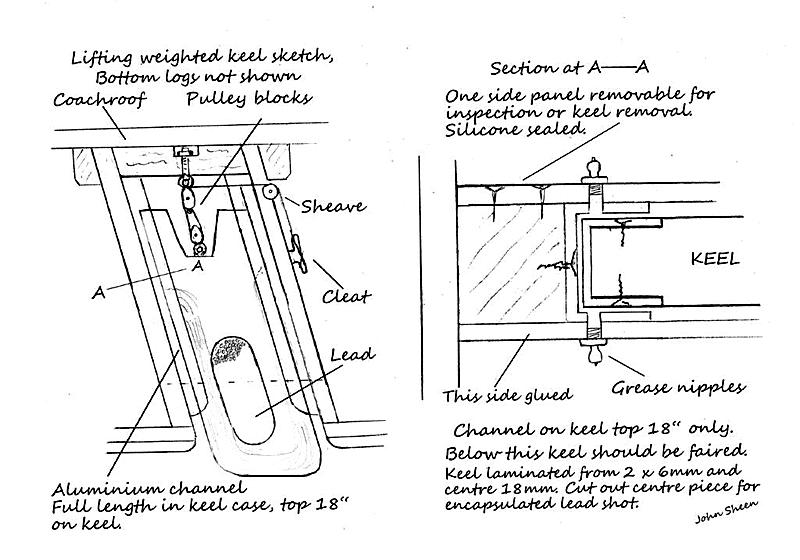 Lifting weighted keel sketch,
Bottom logs not shown
Coachroof
Pulley blocks
Sheave
A
A
Cleat
Lead
Aluminium channel
Full length in keel case, top 18"
on keel.
Section at A—A
One side panel removable for
inspection or keel removal.
Silicone sealed.
KEEL
This side glued
Grease nipples
Channel on keel top 18" only.
Below this keel should be faired.
Keel laminated from 2 x 6mm and
centre 18mm. Cut out centre piece for
encapsulated lead shot.
John Sheen